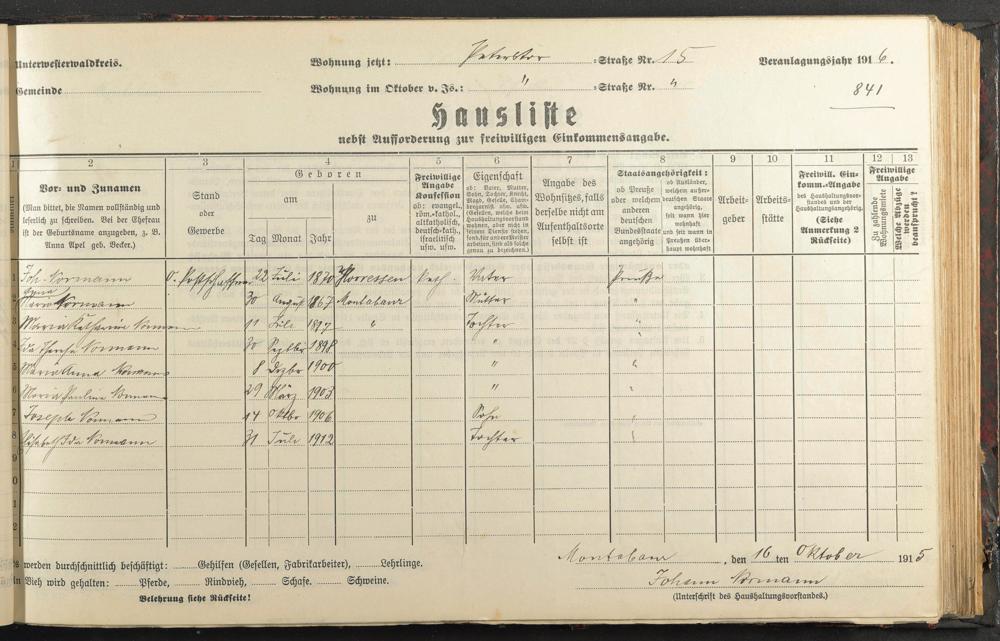 Unterwesterwaldkreis.
Wohnung jetzt: Peterstor =Straße Nr. 15
Veranlagungsjahr 1916.
Gemeinde
Wohnung im Oktober v. Js.: " =Straße Nr. "
841
Hausliste
nebst Aufforderung zur freiwilligen Einkommensangabe.
1 2 3 4 5 6 7 8 9 10 11 12 13
Vor- und Zunamen
(Man bittet, die Namen vollständig und
leserlich zu schreiben. Bei der Ehefrau
ist der Geburtsname anzugeben, z. B.
Anna Apel geb. Becker.)
Stand
oder
Gewerbe
Geboren
am
zu
Tag Monat Jahr
Freiwillige
Angabe
Konfession
ob: evangel.,
röm.-kathol.,
altkatholisch,
deutsch-kath.,
israelitisch
usw. usw.
Eigenschaft
ob: Vater, Mutter,
Sohn, Tochter, Knecht,
Angabe des
Wohnsitzes, falls
derselbe nicht am
Aufenthaltsorte
selbst ist
Staatsangehörigkeit:
ob Preuße
oder welchem
anderen
deutschen
Bundesstaate
angehörig
ob Ausländer,
welchem außer-
deutschen Staate
angehörig,
seit wann hier
wohnhaft
und seit wann in
Preußen über-
haupt wohnhaft
Arbeit-
geber
Arbeits-
stätte
Freiwill. Ein-
komm.-Angabe
des Haushaltungsvor-
standes und der
Haushaltungsangehörig.
(Siehe
Anmerkung 2
Rückseite)
Freiwillige
Angabe
Zu zahlende
Wohnungsmiete
Welche Abzüge
werden
beansprucht?
1 Joh. Normann 22 Juli 1870 Horressen Kath. Vater Preuße
2 Maria Normann 30 August 1867 Montabaur Mutter "
3 Maria Katharina Normann 11 Juli 1897 " Tochter "
4 Normann 30 Septbr 1898 " "
5 Maria Anna Normann 8 Dezbr 1900 "
6 Maria Paulina Normann 29 März 1903 "
7 Joseph Normann 14 Oktbr 1906 Sohn "
8 Elisabeth Ida Normann 31 Juli 1912 Tochter "
9
0
1
2
Es werden durchschnittlich beschäftigt: Gehilfen (Gesellen, Fabrikarbeiter), Lehrlinge.
An Vieh wird gehalten: Pferde, Rindvieh, Schafe. Schweine.
Belehrung siehe Rückseite!
Montabaur, den 16ten Oktober 1915
Johann Normann
(Unterschrift des Haushaltungsvorstandes.)